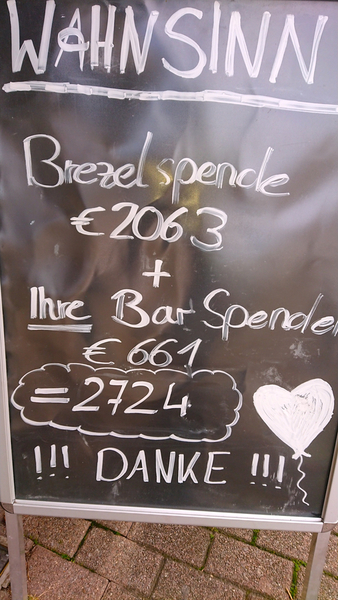 WAHNSINN
Brezelspende
€2063
+
Ihre Bar Spenden
€661
=2724
!!! DANKE !!!